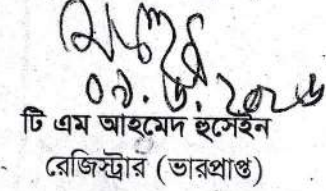 ০৯.৬.২০২৬
টি এম আহমেদ হুসেইন
রেজিস্ট্রার (ভারপ্রাপ্ত)